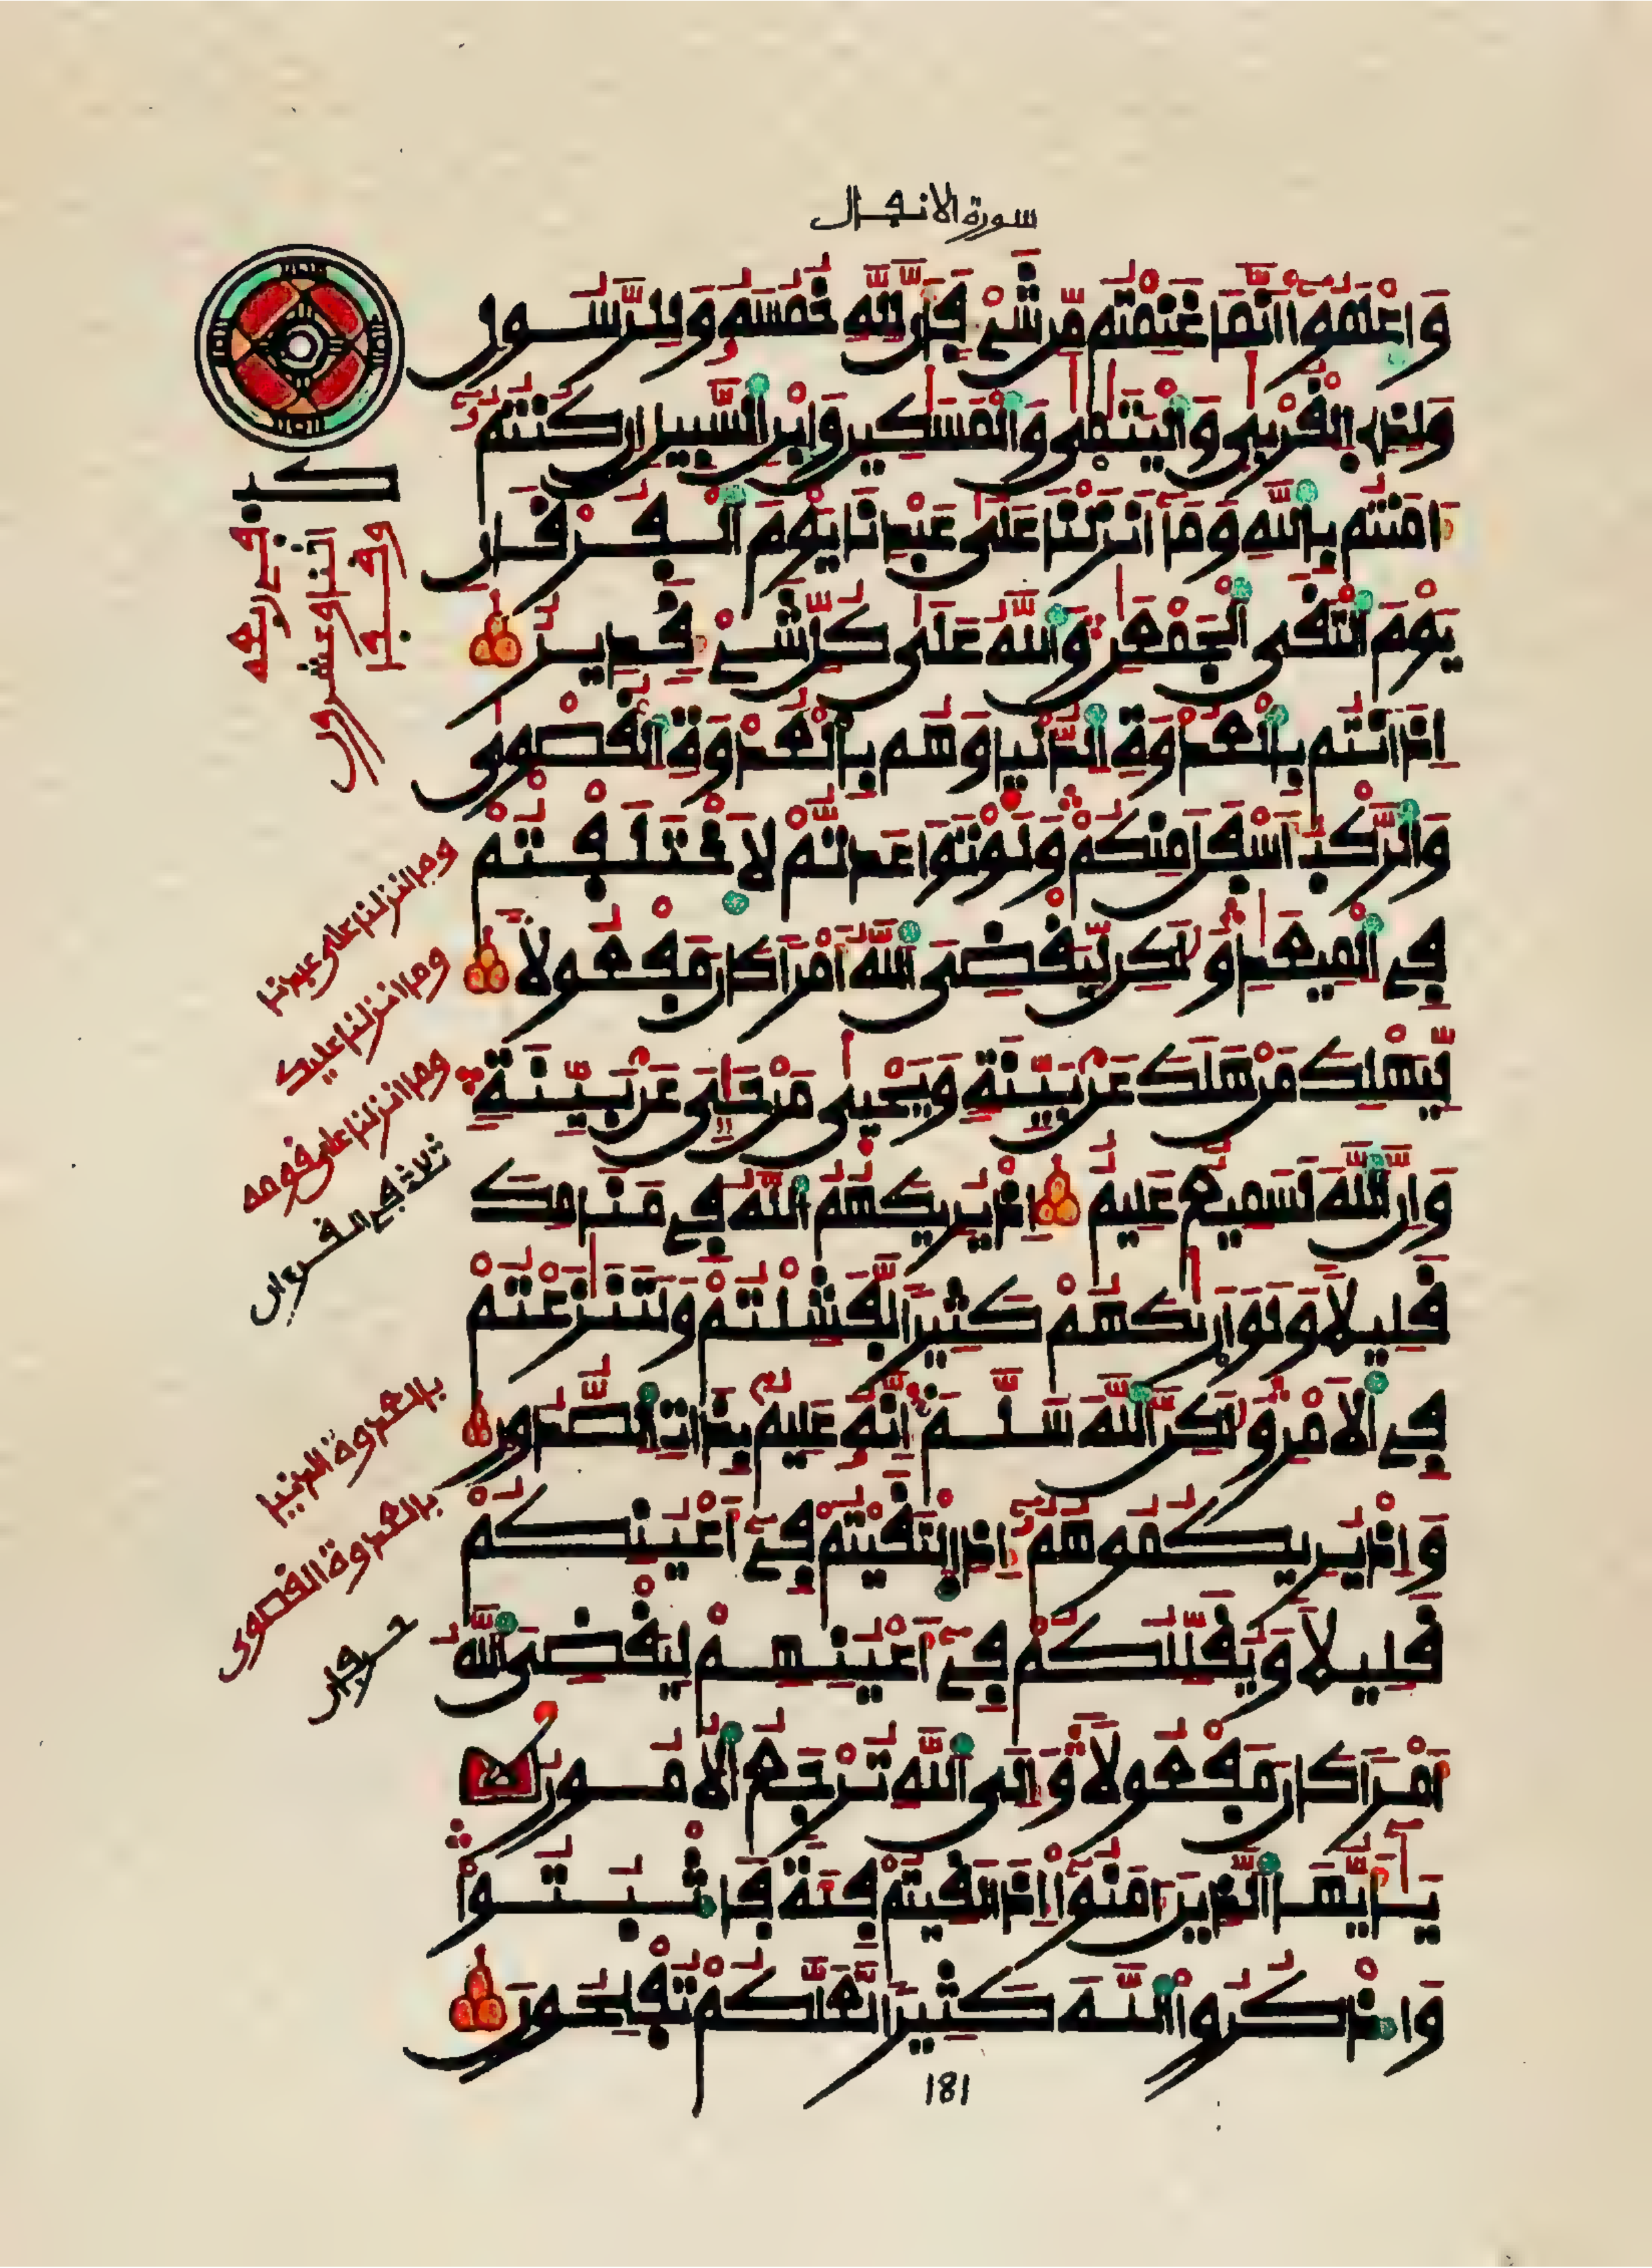 سورة الانفال
وَاعْلَمُوا أَنَّمَا غَنِمْتُم مِّن شَيْءٍ فَأَنَّ لِلَّهِ خُمُسَهُ وَلِلرَّسُولِ
وَلِذِي الْقُرْبَىٰ وَالْيَتَٰمَىٰ وَالْمَسَٰكِينِ وَابْنِ السَّبِيلِ إِن كُنتُمُ
ءَامَنتُم بِاللَّهِ وَمَا أَنزَلْنَا عَلَىٰ عَبْدِنَا يَوْمَ الْفُرْقَانِ
يَوْمَ الْتَقَى الْجَمْعَٰنِ وَاللَّهُ عَلَىٰ كُلِّ شَيْءٍ قَدِيرٌ
إِذْ أَنتُم بِالْعُدْوَةِ الدُّنْيَا وَهُم بِالْعُدْوَةِ الْقُصْوَىٰ
وَالرَّكْبُ أَسْفَلَ مِنكُمْ وَلَوْ تَوَاعَدتُّمْ لَاخْتَلَفْتُمْ
فِي الْمِيعَٰدِ وَلَٰكِن لِّيَقْضِيَ اللَّهُ أَمْرًا كَانَ مَفْعُولًا
لِّيَهْلِكَ مَنْ هَلَكَ عَنۢ بَيِّنَةٍ وَيَحْيَىٰ مَنْ حَيِيَ عَنۢ بَيِّنَةٍ
وَإِنَّ اللَّهَ لَسَمِيعٌ عَلِيمٌ إِذْ يُرِيكَهُمُ اللَّهُ فِي مَنَامِكَ
قَلِيلًا وَلَوْ أَرَىٰكَهُمْ كَثِيرًا لَّفَشِلْتُمْ وَلَتَنَٰزَعْتُمْ
فِي الْأَمْرِ وَلَٰكِنَّ اللَّهَ سَلَّمَ إِنَّهُ عَلِيمٌۢ بِذَاتِ الصُّدُورِ
وَإِذْ يُرِيكُمُوهُمُ إِذِ الْتَقَيْتُمْ فِي أَعْيُنِكُمْ
قَلِيلًا وَيُقَلِّلُكُمْ فِي أَعْيُنِهِمْ لِيَقْضِيَ اللَّهُ
أَمْرًا كَانَ مَفْعُولًا وَإِلَى اللَّهِ تُرْجَعُ الْأُمُورُ
يَٰأَيُّهَا الَّذِينَ ءَامَنُوا إِذَا لَقِيتُمْ فِئَةً فَاثْبُتُوا
وَاذْكُرُوا اللَّهَ كَثِيرًا لَّعَلَّكُمْ تُفْلِحُونَ
181
وما انزلنا على عبدنا
وما انزلنا عليك
وما انزلنا على قومه
ثلاث في القرءان
بالعدوة الدنيا
بالعدوة القصوى
حرفان